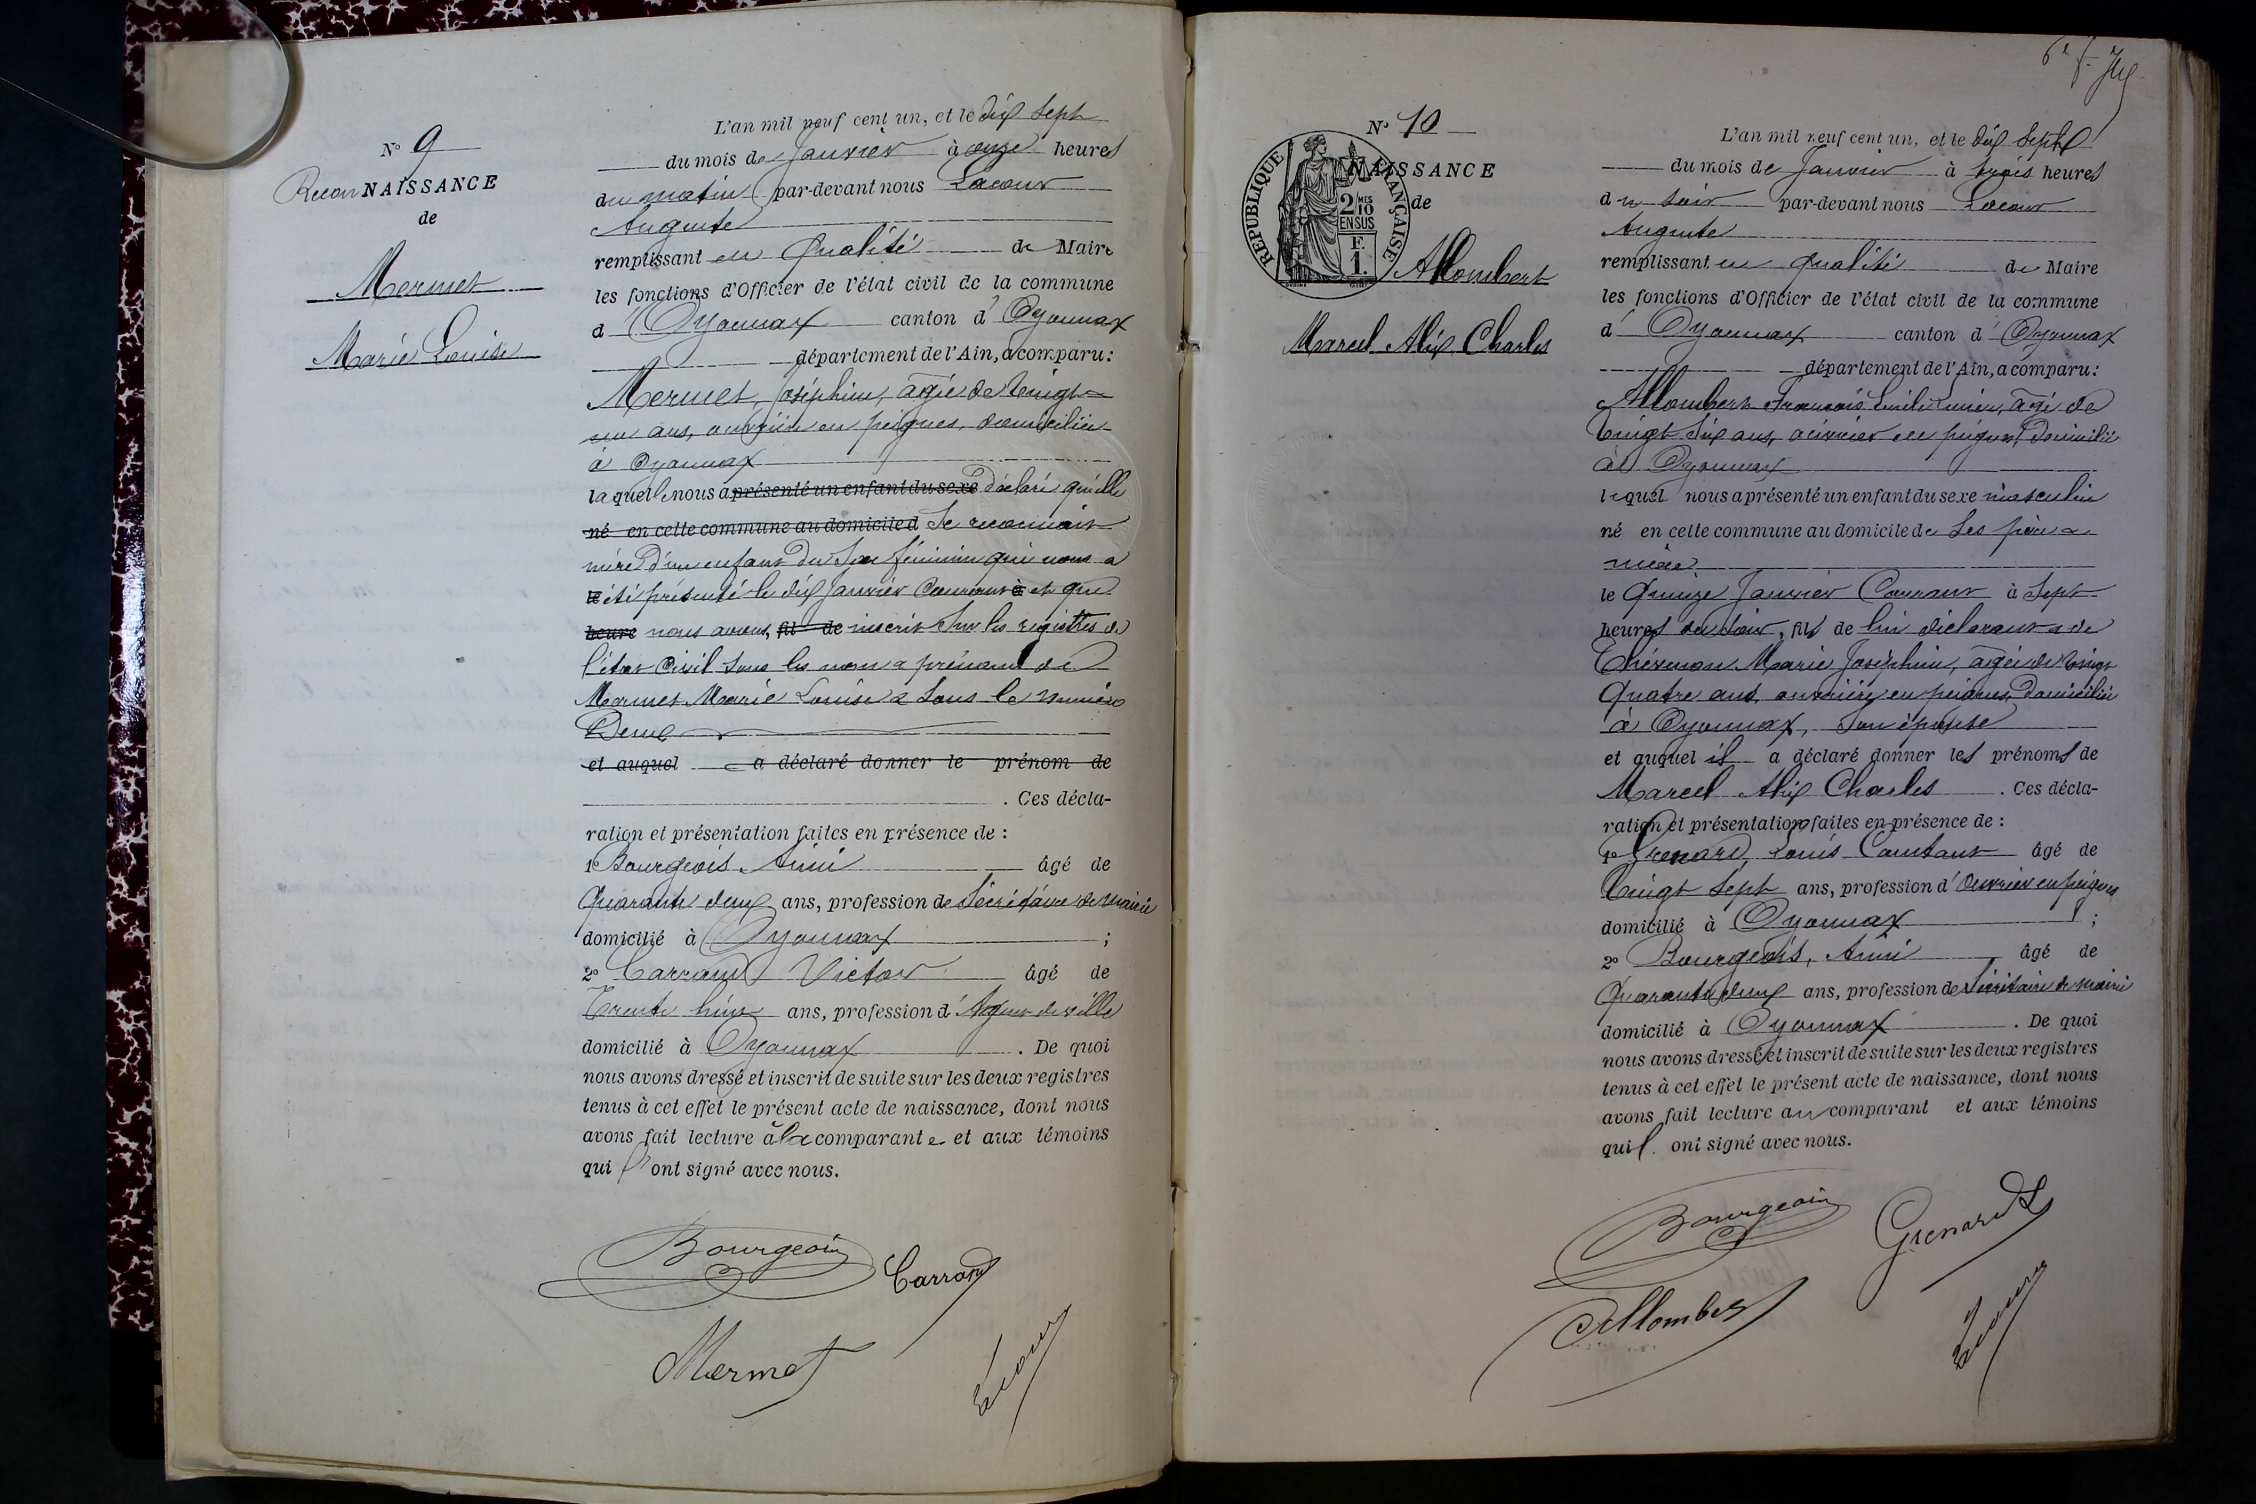 N° 9
ReconNAISSANCE
de
Mermet
Marie Louise
L'an mil neuf cent un, et le dix sept
du mois de Janvier à onze heures
du matin par-devant nous Lacour
Auguste
remplissant en qualité de Maire
les fonctions d'Officier de l'état civil de la commune
d'Oyonnax canton d'Oyonnax
département de l'Ain, a comparu:
Mermet, Joséphine, âgée de vingt
un ans, ouvrière en peignes, domiciliée
à Oyonnax
laquelle nous a présenté un enfant du sexe déclaré qu'elle
né en cette commune au domicile d se reconnait
mère d'un enfant du sexe féminin qui nous a
été présenté le dix Janvier courant à et que
heure nous avons, fil de inscrit sur les registres de
l'état civil sous les nom & prénoms de
Mermet Marie Louise & sous le numéro
Deux
et auquel a déclaré donner le prénom de
. Ces décla-
ration et présentation faites en présence de :
1° Bourgeois Aimé âgé de
quarante deux ans, profession de Secrétaire de Mairie
domicilié à Oyonnax ;
2° Carrand Victor âgé de
Trente huit ans, profession d'Agent de ville
domicilié à Oyonnax . De quoi
nous avons dressé et inscrit de suite sur les deux registres
tenus à cet effet le présent acte de naissance, dont nous
avons fait lecture à la comparante et aux témoins
qui ont signé avec nous.
Bourgeois Carrand
Mermet Lacour
6e f.
N° 10
NAISSANCE
de
REPUBLIQUE FRANÇAISE
2 MES 10 EN SUS
F. 1.
Allombert
Marcel Alix Charles
L'an mil neuf cent un, et le dix sept
du mois de Janvier à trois heures
du soir par-devant nous Lacour
Auguste
remplissant en qualité de Maire
les fonctions d'Officier de l'état civil de la commune
d'Oyonnax canton d'Oyonnax
département de l'Ain, a comparu:
Allombert François âgé de
vingt six ans, ouvrier en peignes, domicilié
à Oyonnax
lequel nous a présenté un enfant du sexe masculin
né en cette commune au domicile de ses père &
mère
le quinze Janvier courant à sept
heures du soir, fils de lui déclarant & de
Marie Joséphine, âgée de vingt
quatre ans, ouvrière en peignes, domiciliée
à Oyonnax, son épouse
et auquel il a déclaré donner les prénoms de
Marcel Alix Charles . Ces décla-
ration et présentation faites en présence de :
1° Grenard, Louis Constant âgé de
vingt sept ans, profession d'ouvrier en peignes
domicilié à Oyonnax ;
2° Bourgeois, Aimé âgé de
quarante deux ans, profession de Secrétaire de Mairie
domicilié à Oyonnax . De quoi
nous avons dressé et inscrit de suite sur les deux registres
tenus à cet effet le présent acte de naissance, dont nous
avons fait lecture au comparant et aux témoins
qui ont signé avec nous.
Bourgeois Grenard
Allombert Lacour